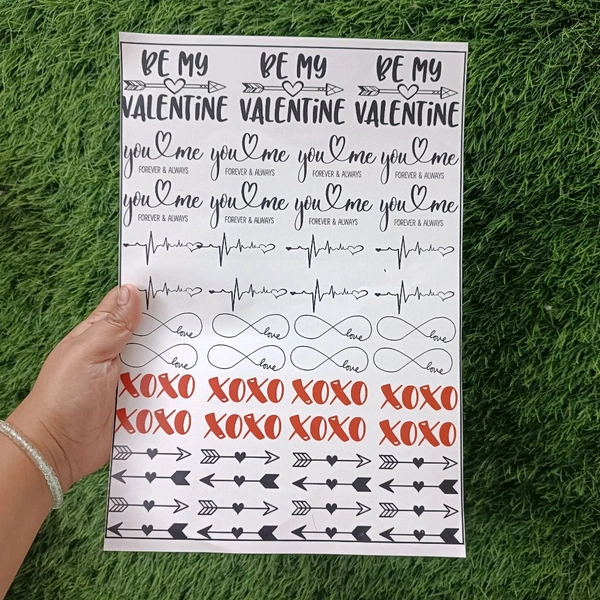 BE MY BE MY BE MY
VALENTiNE VALENTiNE VALENTiNE
you me you me you me you me
FOREVER & ALWAYS FOREVER & ALWAYS FOREVER & ALWAYS FOREVER & ALWAYS
you me you me you me you me
FOREVER & ALWAYS FOREVER & ALWAYS FOREVER & ALWAYS FOREVER & ALWAYS
love love love love
love love love love
XOXO XOXO XOXO XOXO
XOXO XOXO XOXO XOXO